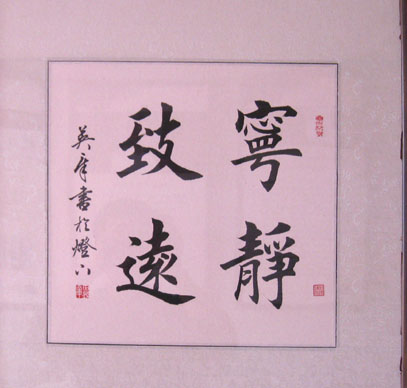 寧靜
致遠
英年書於燈下